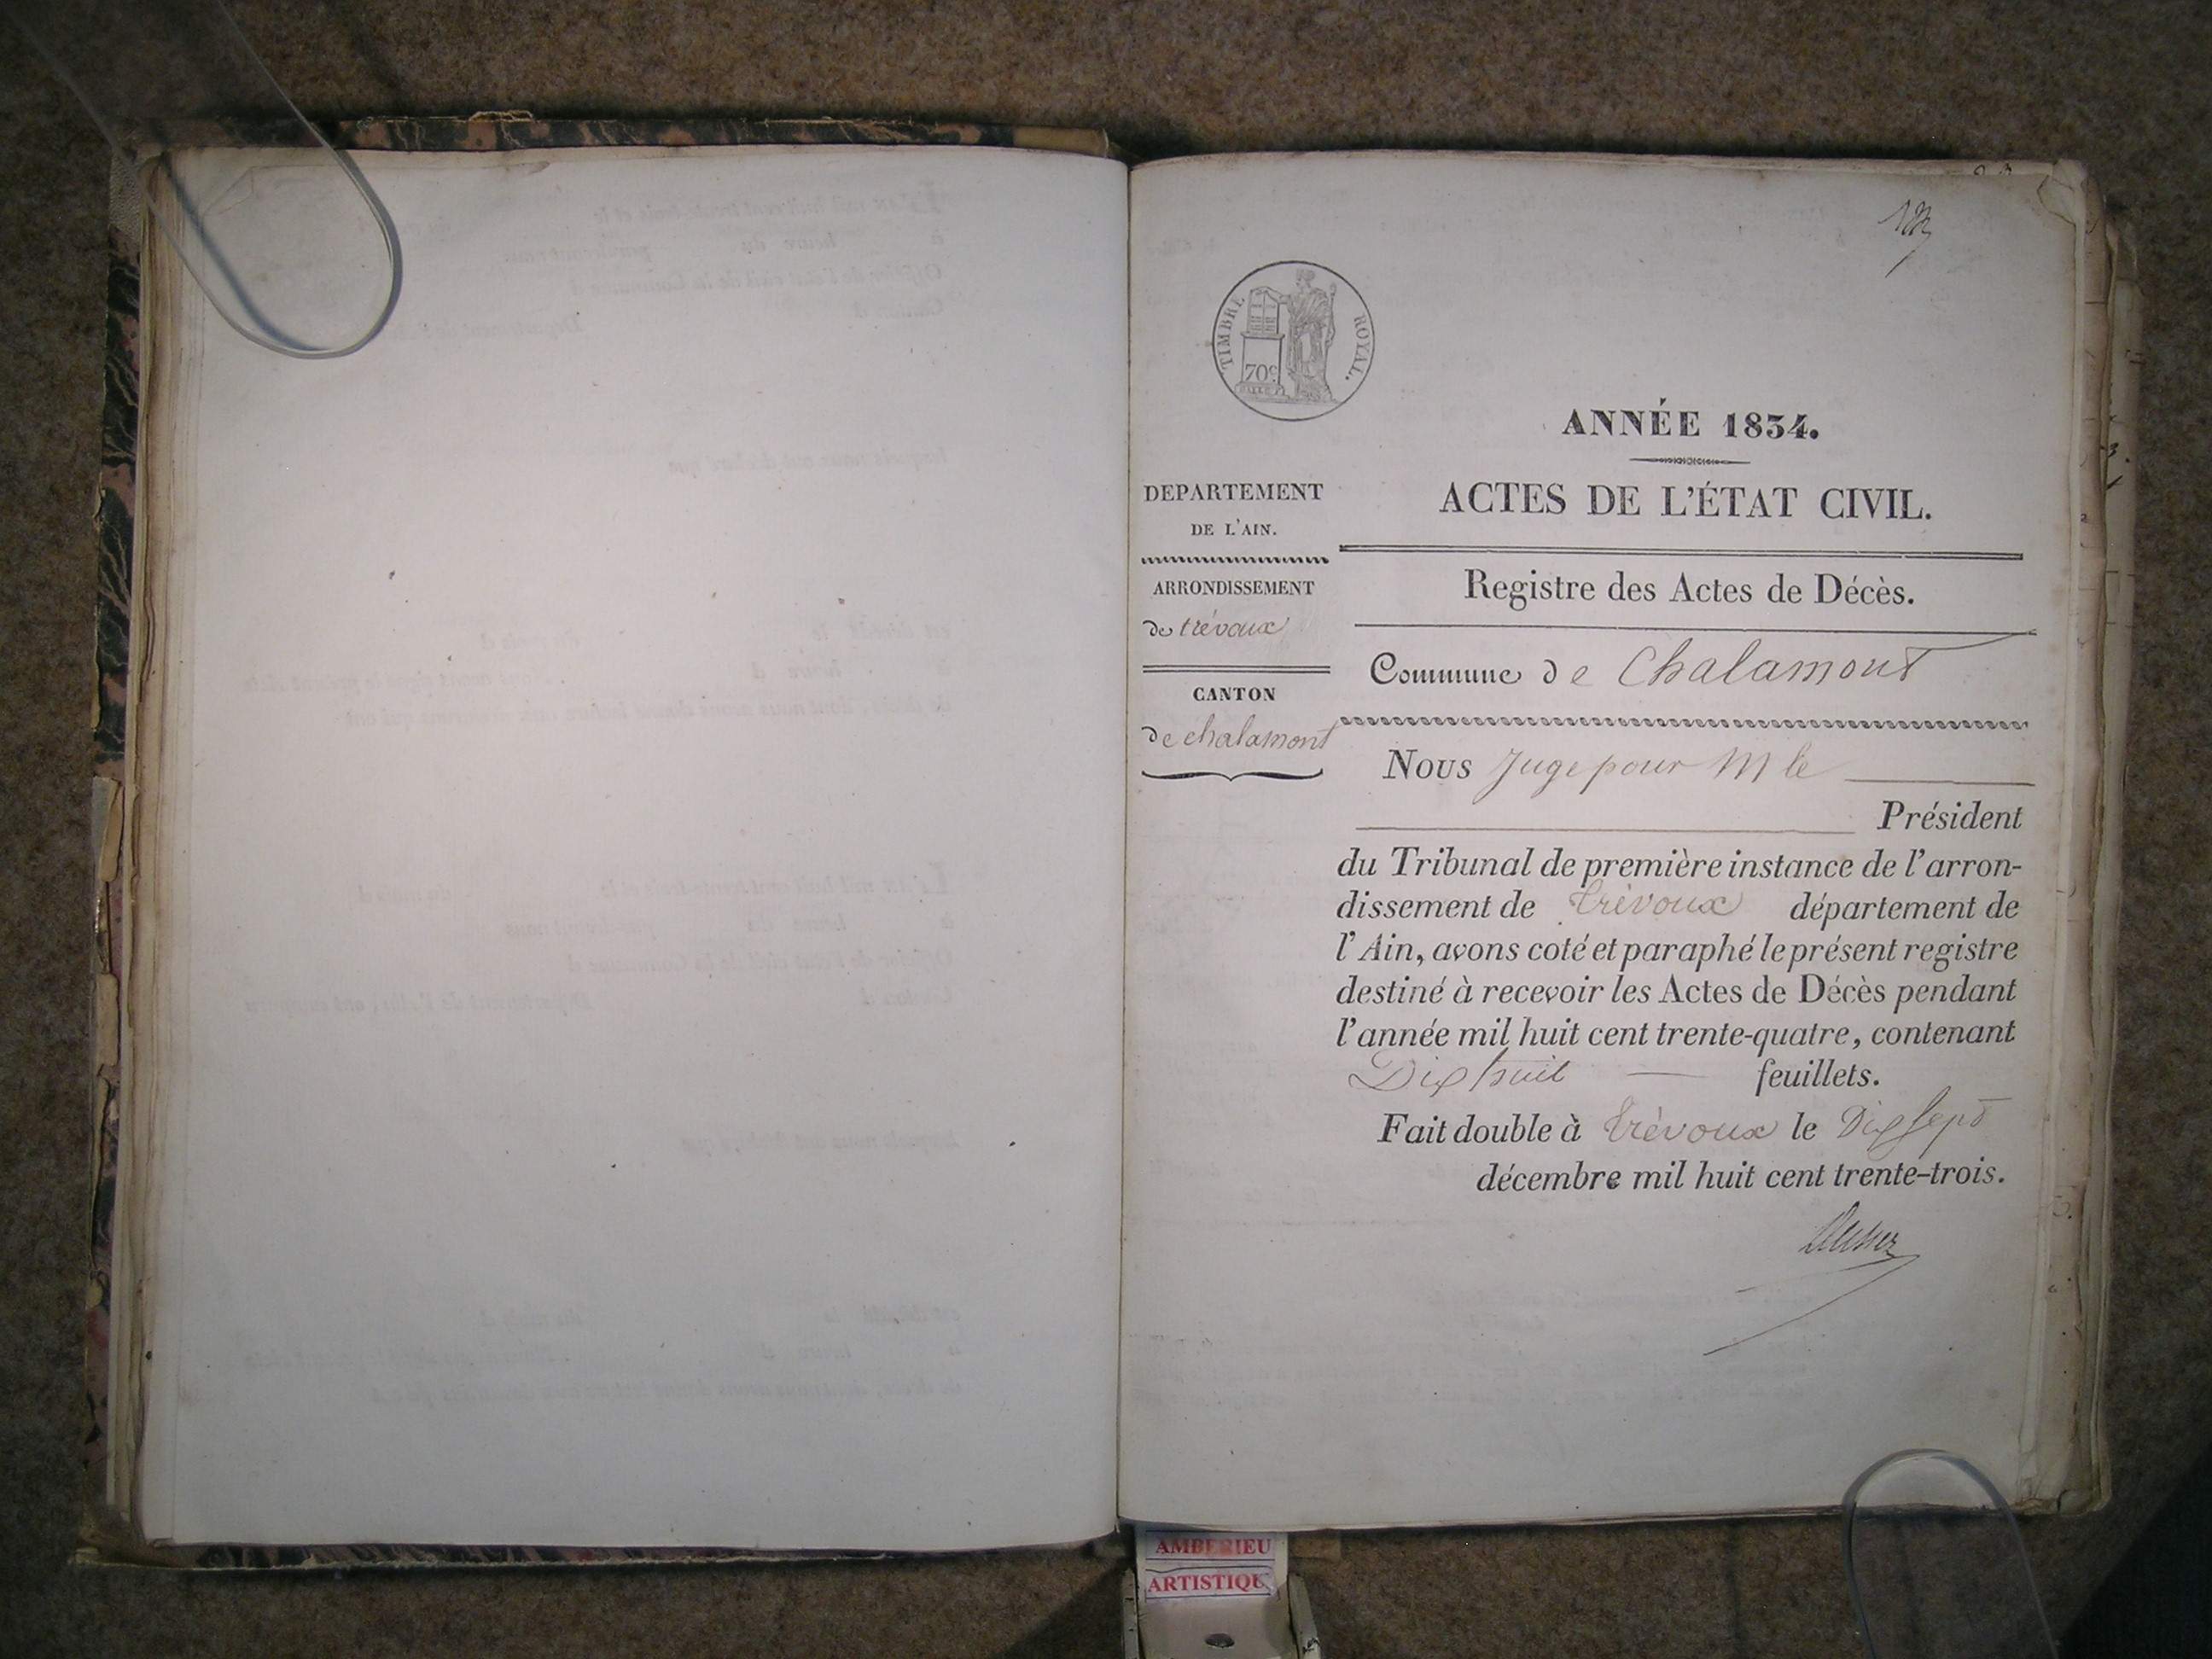 TIMBRE ROYAL.
70c
ANNÉE 1834.
DEPARTEMENT
DE L'AIN.
ARRONDISSEMENT
de trévoux
CANTON
de chalamont
ACTES DE L'ÉTAT CIVIL.
Registre des Actes de Décès.
Commune de Chalamont
Nous Juge pour M le
Président
du Tribunal de première instance de l'arron-
dissement de trévoux département de
l'Ain, avons coté et paraphé le présent registre
destiné à recevoir les Actes de Décès pendant
l'année mil huit cent trente-quatre, contenant
Dix huit feuillets.
Fait double à trévoux le Dix sept
décembre mil huit cent trente-trois.
AMBERIEU
ARTISTIQUE